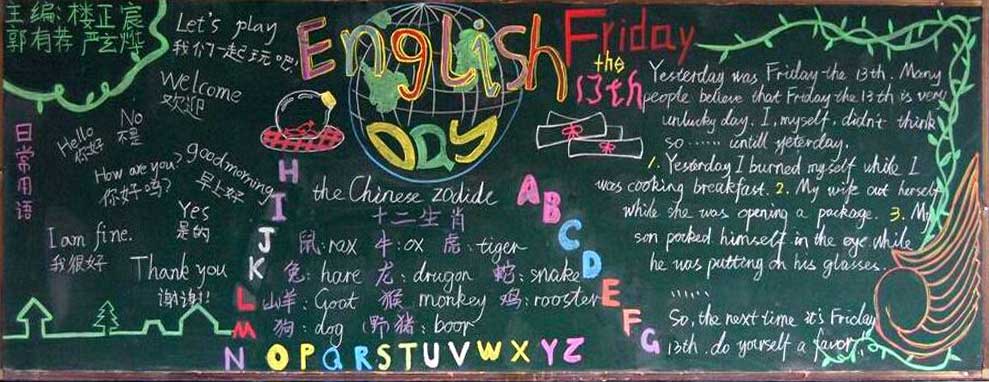 主编:楼正宸
郭有荐 严玄烨
Let's play
我们一起玩吧.
Welcome
欢迎
日常用语
Hello
你好
No
不是
How are you?
你好吗?
goodmorning
早上好
Yes
是的
I am fine.
我很好
Thank you
谢谢!
English
Day
the Chinese zodide
十二生肖
鼠:rax 牛:ox 虎:tiger
兔:hare 龙:drugon 蛇:snake
山羊:Goat 猴 monkey 鸡:rooster
狗:dog (野猪:boor
A
B
C
D
E
F
G
H
I
J
K
L
M
N O P Q R S T U V W X Y Z
Friday
the
13th
Yesterday was Friday the 13th. Many
people believe that Friday the 13th is very
unlucky day. I, myself, didn't think
so ...... untill yeterday.
1. Yesterday I burned myself while I
was cooking breakfast. 2. My wife out herself
while she was opening a package. 3. My
son pocked himself in the eye while
he was putting on his glasses.
......
So, the next time it's Friday
13th. do yourself a favor